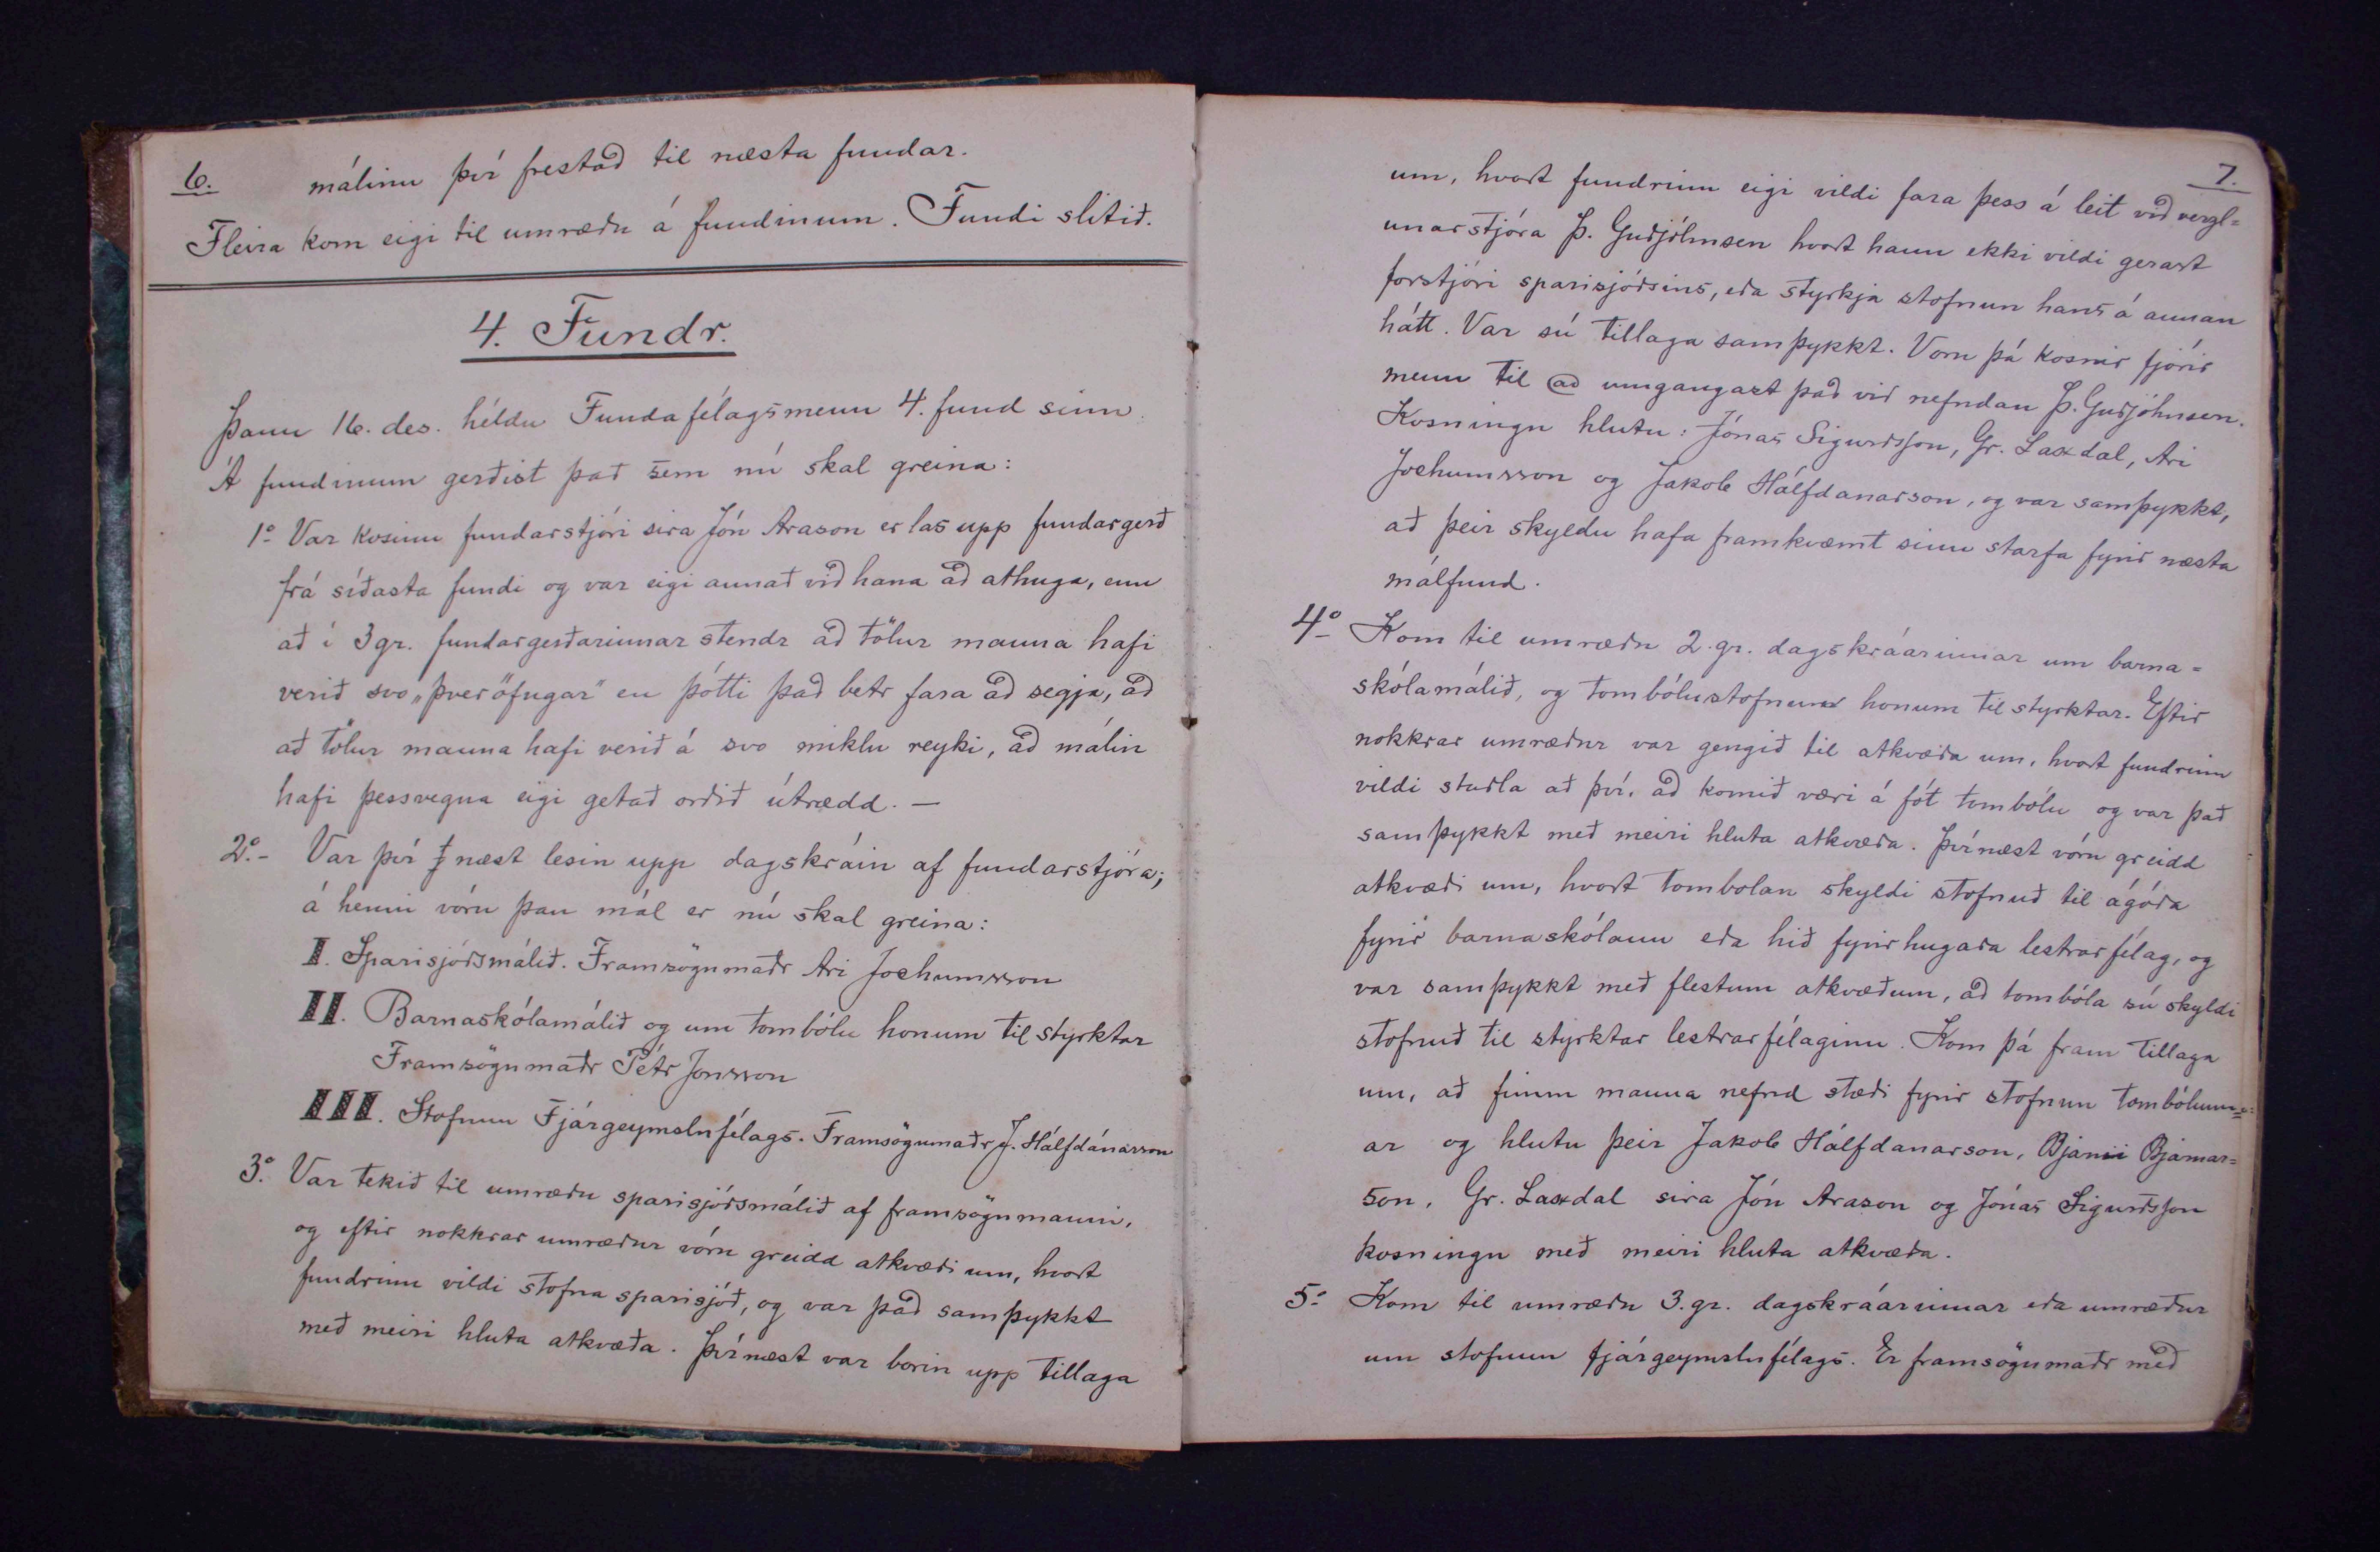 6.
málinu því frestað til næsta fundar.
Fleira kom eigi til umræðu á fundinum. Fundi slitið.
4. Fundr.
Þann 16. des. héldu Fundafélagsmenn 4. fund sinn.
Á fundinum gerðist það sem nú skal greina:
1º Var kosinn fundarstjóri sira Jón Arason er las upp fundargerð
frá síðasta fundi og var eigi annað við hana að athuga, enn
að í 3 gr. fundargerðarinnar stendr að tölur manna hafi
verið svo „þveröfugar" en þótti það betr fara að segja, að
að tölur manna hafi verið á svo miklu reyki, að málin
hafi þessvegna eigi getað orðið útrædd. —
2º- Var því næst lesin upp dagskráin af fundarstjóra;
á henni vóru þau mál er nú skal greina:
I. Sparisjóðsmálið. Framsögumaðr Ari Jochumsson
II. Barnaskólamálið og um tombólu honum til styrktar
Framsögumaðr Pétr Jónsson
III. Stofnun Fjárgeymslufélags. Framsögumaðr J. Hálfdánarson
3º. Var tekið til umræðu sparisjóðsmálið af framsögumanni,
og eftir nokkrar umræður vóru greidd atkvæði um, hvort
fundrinn vildi stofna sparisjóð, og var það samþykkt
með meiri hluta atkvæða. Þvínæst var borin upp tillaga
7.
um, hvort fundrinn eigi vildi fara þess á leit við verzl=
unarstjóra Þ. Guðjóhnsen hvort hann ekki vildi gerast
forstjóri sparisjóðsins, eða styrkja stofnun hans á annan
hátt. Var sú tillaga samþykkt. Voru þá kosnir fjórir
menn til að umgangast það við nefndan Þ. Guðjóhnsen.
Kosningu hlutu: Jónas Sigurðsson, Gr. Laxdal, Ari
Jochumsson og Jakob Hálfdanarson, og var samþykkt,
að þeir skyldu hafa framkvæmt sinn starfa fyrir næsta
málfund.
4º- Kom til umræðu 2. gr. dagskráarinnar um barna=
skólamálið, og tombólustofnun honum til styrktar. Eftir
nokkrar umræður var gengið til atkvæða um, hvort fundrinn
vildi stuðla að því, að komið væri á fót tombólu og var það
samþykkt með meiri hluta atkvæða. Þvínæst vóru greidd
atkvæði um, hvort tombolan skyldi stofnuð til ágóða
fyrir barnaskólann eða hið fyrirhugaða lestrarfélag, og
var samþykkt með flestum atkvæðum, að tombóla sú skyldi
stofnuð til styrktar lestrarfélaginu. Kom þá fram tillaga
um, að fimm manna nefnd stæði fyrir stofnun tombólunn=
ar og hlutu þeir Jakob Hálfdanarson, Bjarni Bjarnar=
son, Gr. Laxdal sira Jón Arason og Jónas Sigurðsson
kosningu með meiri hluta atkvæða.
5º Kom til umræðu 3. gr. dagskráarinnar eða umræður
um stofnun fjárgeymslufélags. Er framsögumaðr með